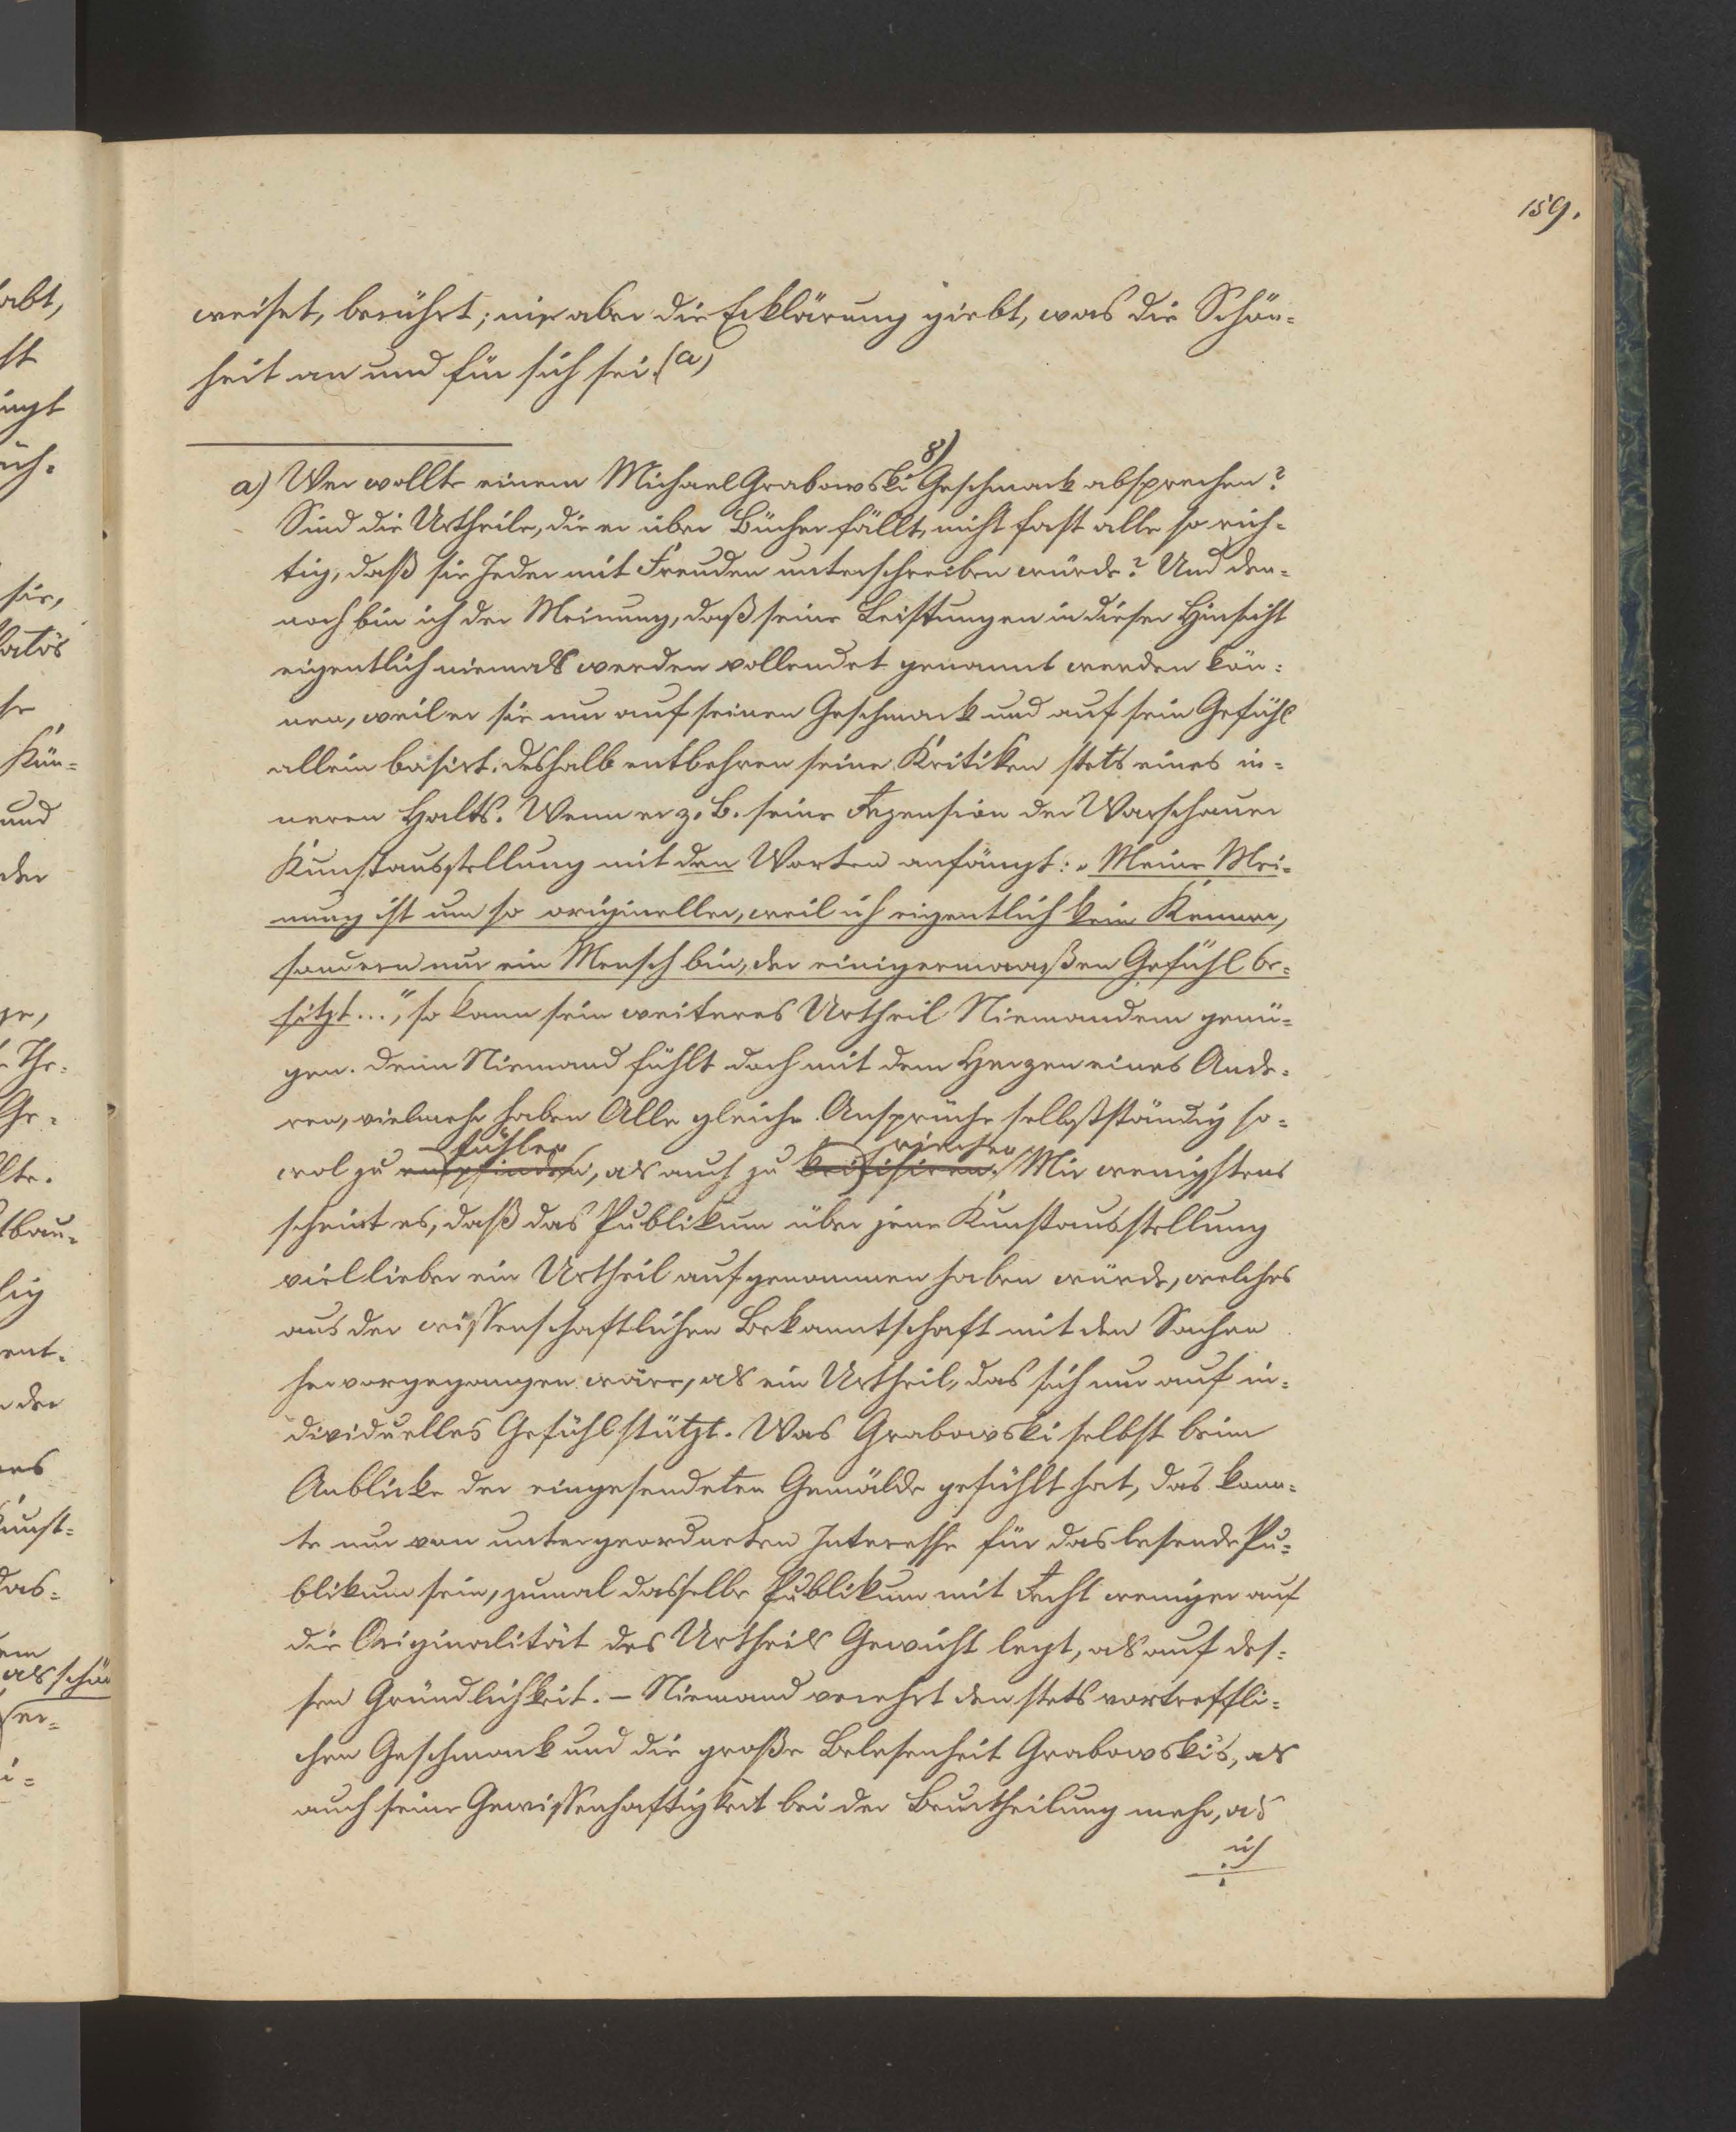 159.
weiset, berührt; nie aber die Erklärung giebt, was die Schön-
heit an und für sich sei. (a)
a) Wer wollte einem Michael Grabowski 8) Geschmack absprechen?
Sind die Urtheile, die er über Bücher fällt, nicht fast alle so rich-
tig, daß sie Jeder mit Freuden unterschreiben würde? Und den-
noch bin ich der Meinung, daß seine Leistungen in dieser Hinsicht
eigentlich niemals werden vollendet genannt werden kön-
nen, weil er sie nur auf seinen Geschmack und auf sein Gefühl
allein basirt. Deshalb entbehren seine Kritiken stets eines in-
neren Halts. Wenn er z. B. seine Rezension der Warschauer
Kunstausstellung mit den Worten anfängt: „Meine Mei-
nung ist um so origineller, weil ich eigentlich kein Kenner,
sondern nur ein Mensch bin, der einigermaaßen Gefühl be-
sitzt...", so kann sein weiteres Urtheil Niemandem genü-
gen. Denn Niemand fühlt doch mit dem Herzen eines Ande-
ren, vielmehr haben Alle gleiche Ansprüche selbstständig so-
fühlen
wol zu empfinden, als auch zu kritisiren. Mir wenigstens
scheint es, daß das Publikum über jene Kunstausstellung
viel lieber ein Urtheil aufgenommen haben würde, welches
aus der wissenschaftlichen Bekanntschaft mit den Sachen
hervorgegangen wäre, als ein Urtheil, das sich nur auf in-
dividuelles Gefühl stützt. Was Grabowski selbst beim
Anblicke der eingesendeten Gemälde gefühlt hat, das konn-
te nur von untergeordneten Interesse für das lesende Pu-
blikum sein, zumal dasselbe Publikum mit Recht weniger auf
die Originalität des Urtheils Gewicht legt, als auf des-
sen Gründlichkeit. – Niemand verehrt den stets vortreffli-
chen Geschmack und die große Belesenheit Grabowski's, als
auch seine Gewissenhaftigkeit bei der Beurtheilung mehr, als
ich